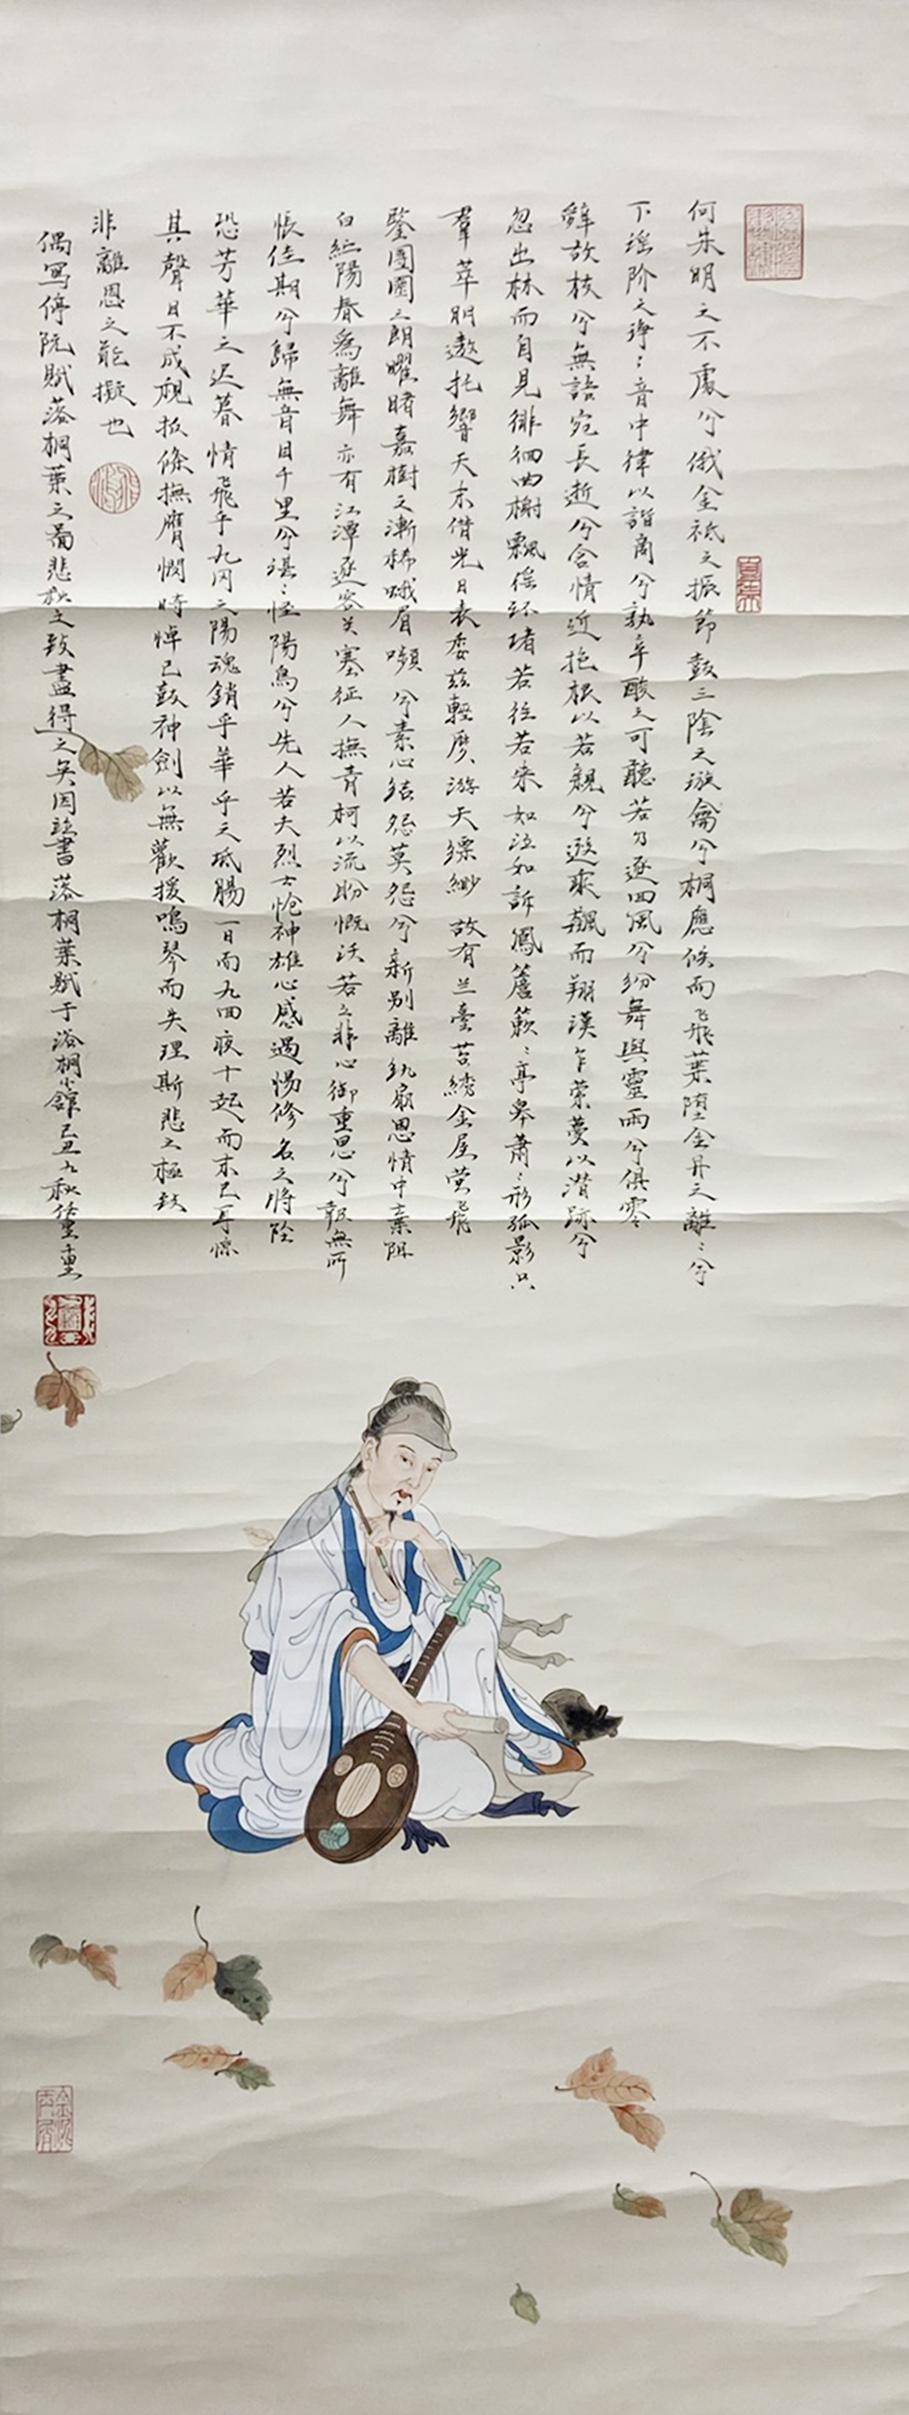 何朱明之不處兮俄金祗之振節鼓三陰之漩龠兮桐應候而飛葉墮金井之離〻兮
下瑶阶之琤〻音中律以諧商兮孰辛酸之可聽若乃逐四風兮紛舞與靈雨兮俱零
辭故枝兮無語宛長逝兮含情近抱根以若親兮遊乘飆而翔漢乍縈蔓以潜跡兮
忽出林而自見徘徊曲榭飄徭环堵若往若来如泣如訴鳳簷簌〻亭皋蕭〻形孤影只
羣萃朋遨托響天末借光日表委兹輕 游天缥緲故有兰臺苔綉金屋萤飛
鑒團圞之朗曜睹嘉樹之漸稀蛾眉嚬兮素心結怨莫怨兮新别離纨扇恩情中棄阻
白紵陽春為離舞亦有江潭逐客关塞征人撫青柯以流盼慨沃若之非心御重思兮報無所
悵佳期兮歸無音目千里兮湛〻怪陽鳥兮先人若夫烈士怆神雄心感遇惕修名之將隕
恐芳華之迟暮情飛乎九闪之陽魂銷乎華乎之砥腸一日而九回夜十起而未已耳慄
其聲目不成覩扳條撫膺憫時悼已鼓神劍以無歡援鳴琴而失理斯悲之極致
非離恩之能擬也
偶寫停阮賦落桐葉之圖悲秋之致盡得之矣因 書落桐葉賦于落桐小館己丑九秋 重